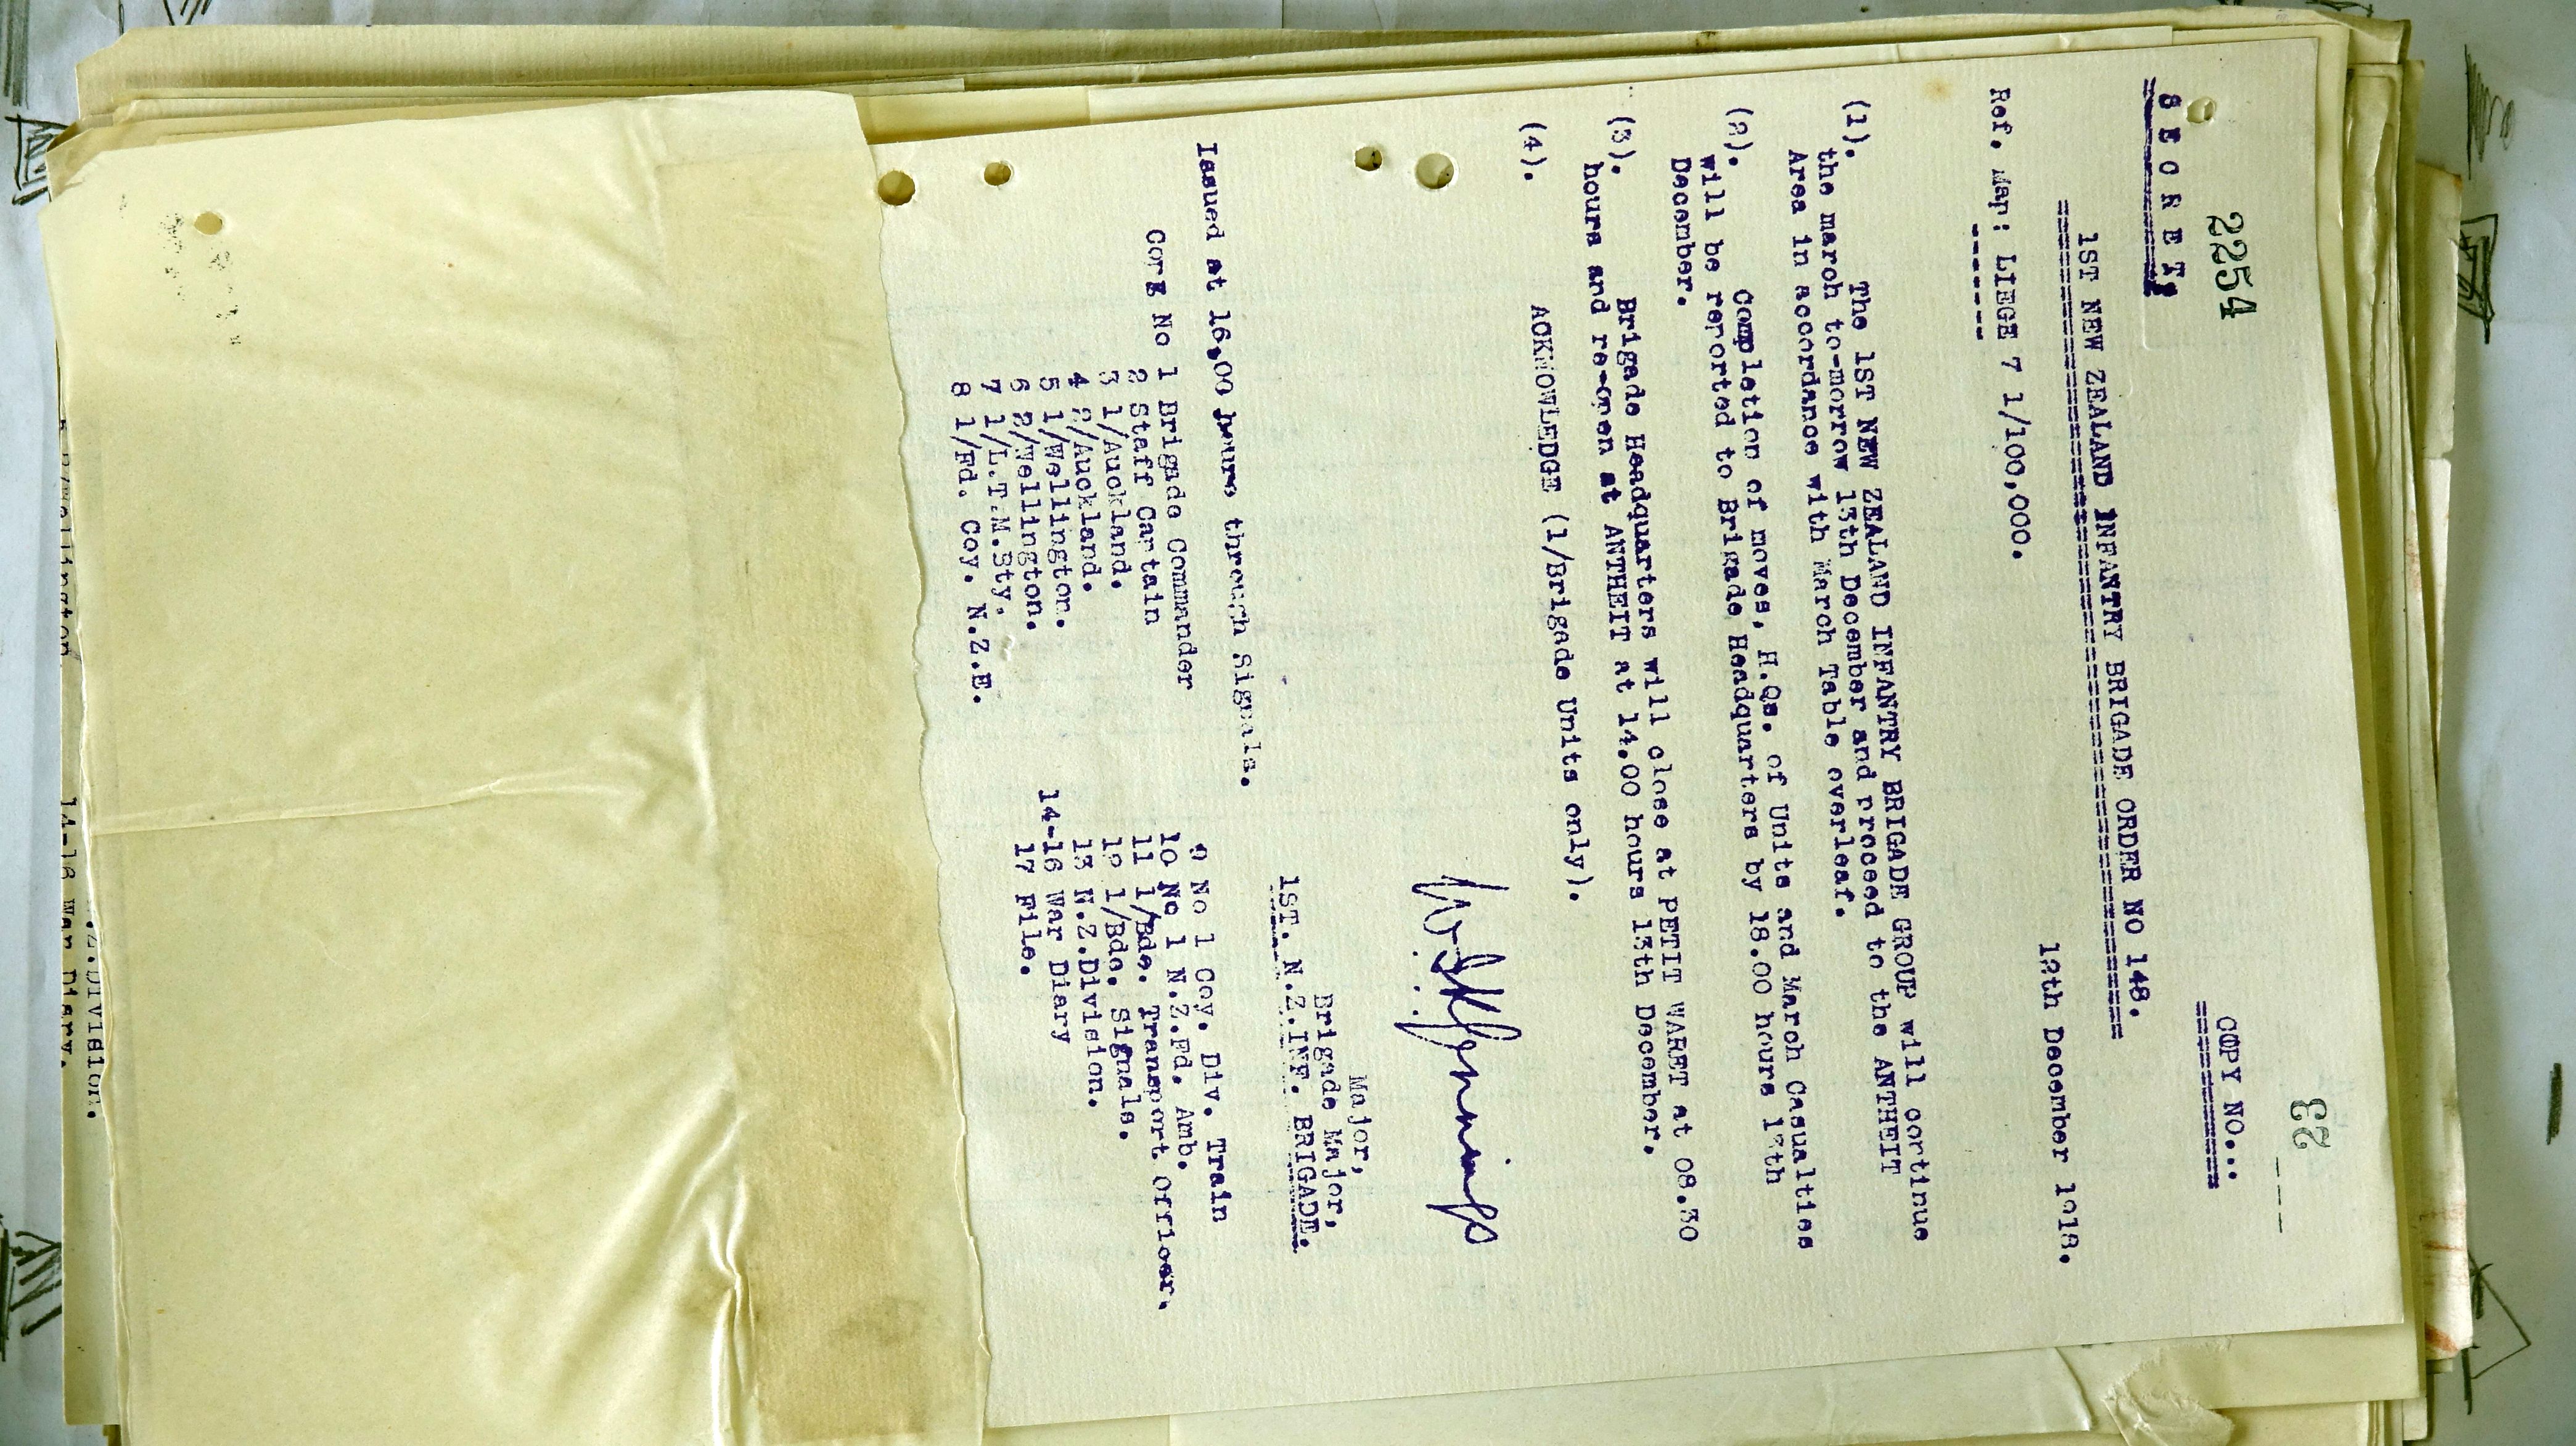 2254
23
SECRET.
COPY NO...
1ST NEW ZEALAND INFANTRY BRIGADE ORDER NO 148.
12th December 1918.
Ref. Map: LIEGE 7 1/100,000.
(1). The 1ST NEW ZEALAND INFANTRY BRIGADE GROUP will continue
the march to-morrow 13th December and proceed to the ANTHEIT
Area in accordance with March Table overleaf.
(2). Completion of moves, H.Qs. of Units and March Casualties
will be reported to Brigade Headquarters by 18.00 hours 13th
December.
(3). Brigade Headquarters will close at PETIT WARET at 08.30
hours and re-open at ANTHEIT at 14.00 hours 13th December.
(4). ACKNOWLEDGE (1/Brigade Units only).
Major,
Brigade Major,
1ST. N.Z.INF. BRIGADE.
Issued at 16.00 hours through Signals.
Copy No 1 Brigade Commander
2 Staff Captain
3 1/Auckland.
4 2/Auckland.
5 1/Wellington.
6 2/Wellington.
7 1/L.T.M.Bty.
8 1/Fd. Coy. N.Z.E.
9 No 1 Coy. Div. Train
10 No 1 N.Z.Fd. Amb.
11 1/Bde. Transport Officer.
12 1/Bde. Signals.
13 N.Z.Division.
14-16 War Diary
17 File.
.Z.Division.
2/Wellington 14-16 War Diary.